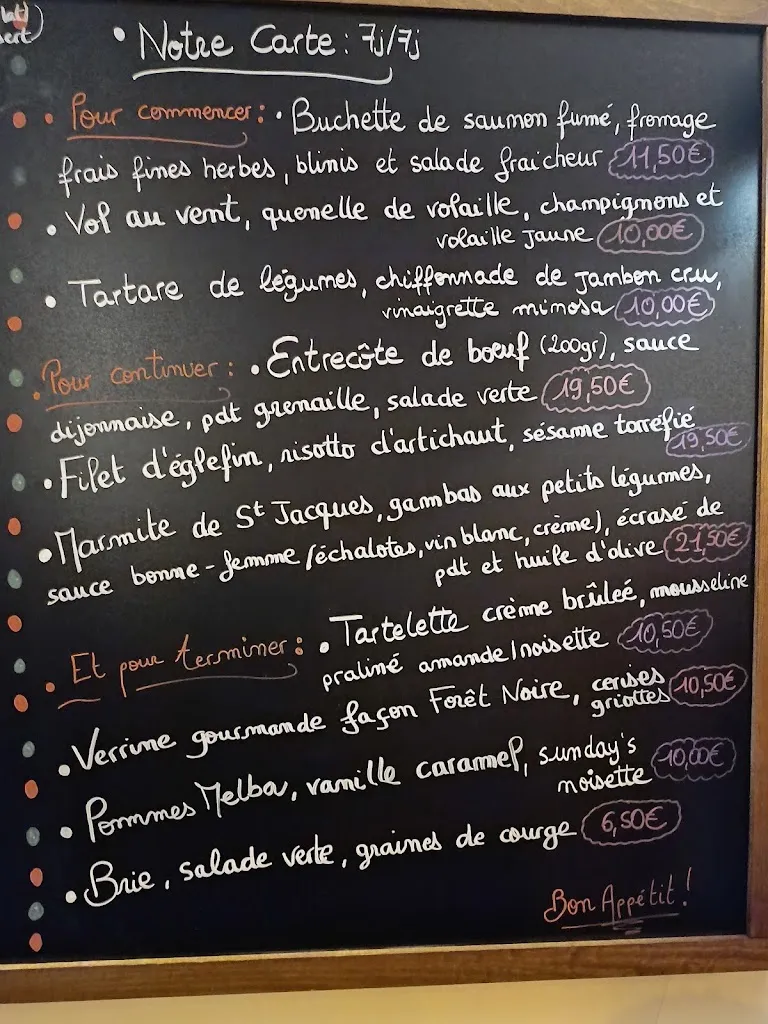 • Notre Carte : 7j/7j
• Pour commencer : • Buchette de saumon fumé, fromage
frais fines herbes, blinis et salade fraicheur 11,50€
• Vol au vent, quenelle de volaille, champignons et
volaille jaune 10,00€
• Tartare de légumes, chiffonnade de jambon cru,
vinaigrette mimosa 10,00€
• Pour continuer : • Entrecôte de boeuf (200gr), sauce
dijonnaise, pdt grenaille, salade verte 19,50€
• Filet d'églefin, risotto d'artichaut, sésame torréfié
19,50€
• Marmite de St Jacques, gambas aux petits légumes,
sauce bonne-femme (échalotes, vin blanc, crème), écrasé de
pdt et huile d'olive 21,50€
• Et pour terminer : • Tartelette crème brûleé, mousseline
praliné amande/noisette 10,50€
• Verrine gourmande façon Forêt Noire, cerises
griottes 10,50€
• Pommes Melba, vanille caramel, sunday's
noisette 10,00€
• Brie, salade verte, graines de courge 6,50€
Bon Appétit !